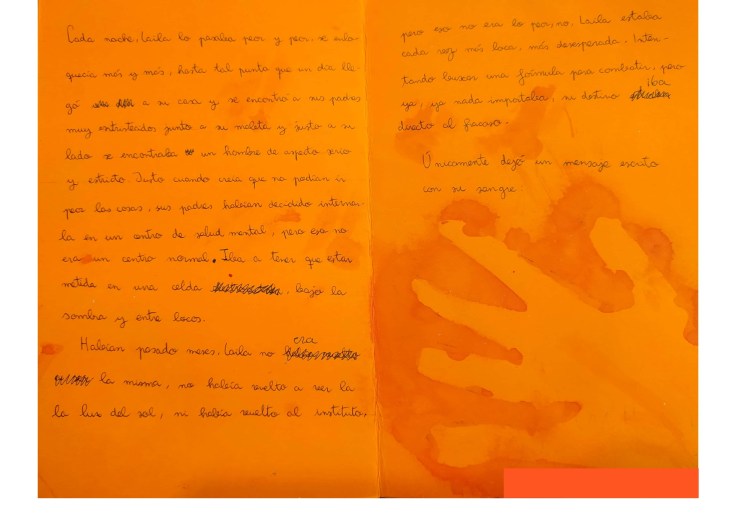 Cada noche, Laila lo pasaba peor y peor, se enlo-
quecía más y más, hasta tal punto que un día lle-
gó a su casa y se encontró a sus padres
muy entristecidos junto a su maleta y justo a su
lado se encontraba un hombre de aspecto serio
y estricto. Justo cuando creía que no podían ir
peor las cosas, sus padres habían decidido interna-
la en un centro de salud mental, pero eso no
era un centro normal. Iba a tener que estar
metida en una celda, bajo la
sombra y entre locos.
Habían pasado meses, Laila no era
la misma, no había vuelto a ver la
la luz del sol, ni había vuelto al instituto,
pero eso no era lo peor, no, Laila estaba
cada vez más loca, más desesperada. Inten-
tando buscar una fórmula para combatir, pero
ya, ya nada importaba, su destino iba
directo al fracaso.
Únicamente dejó un mensaje escrito
con su sangre.